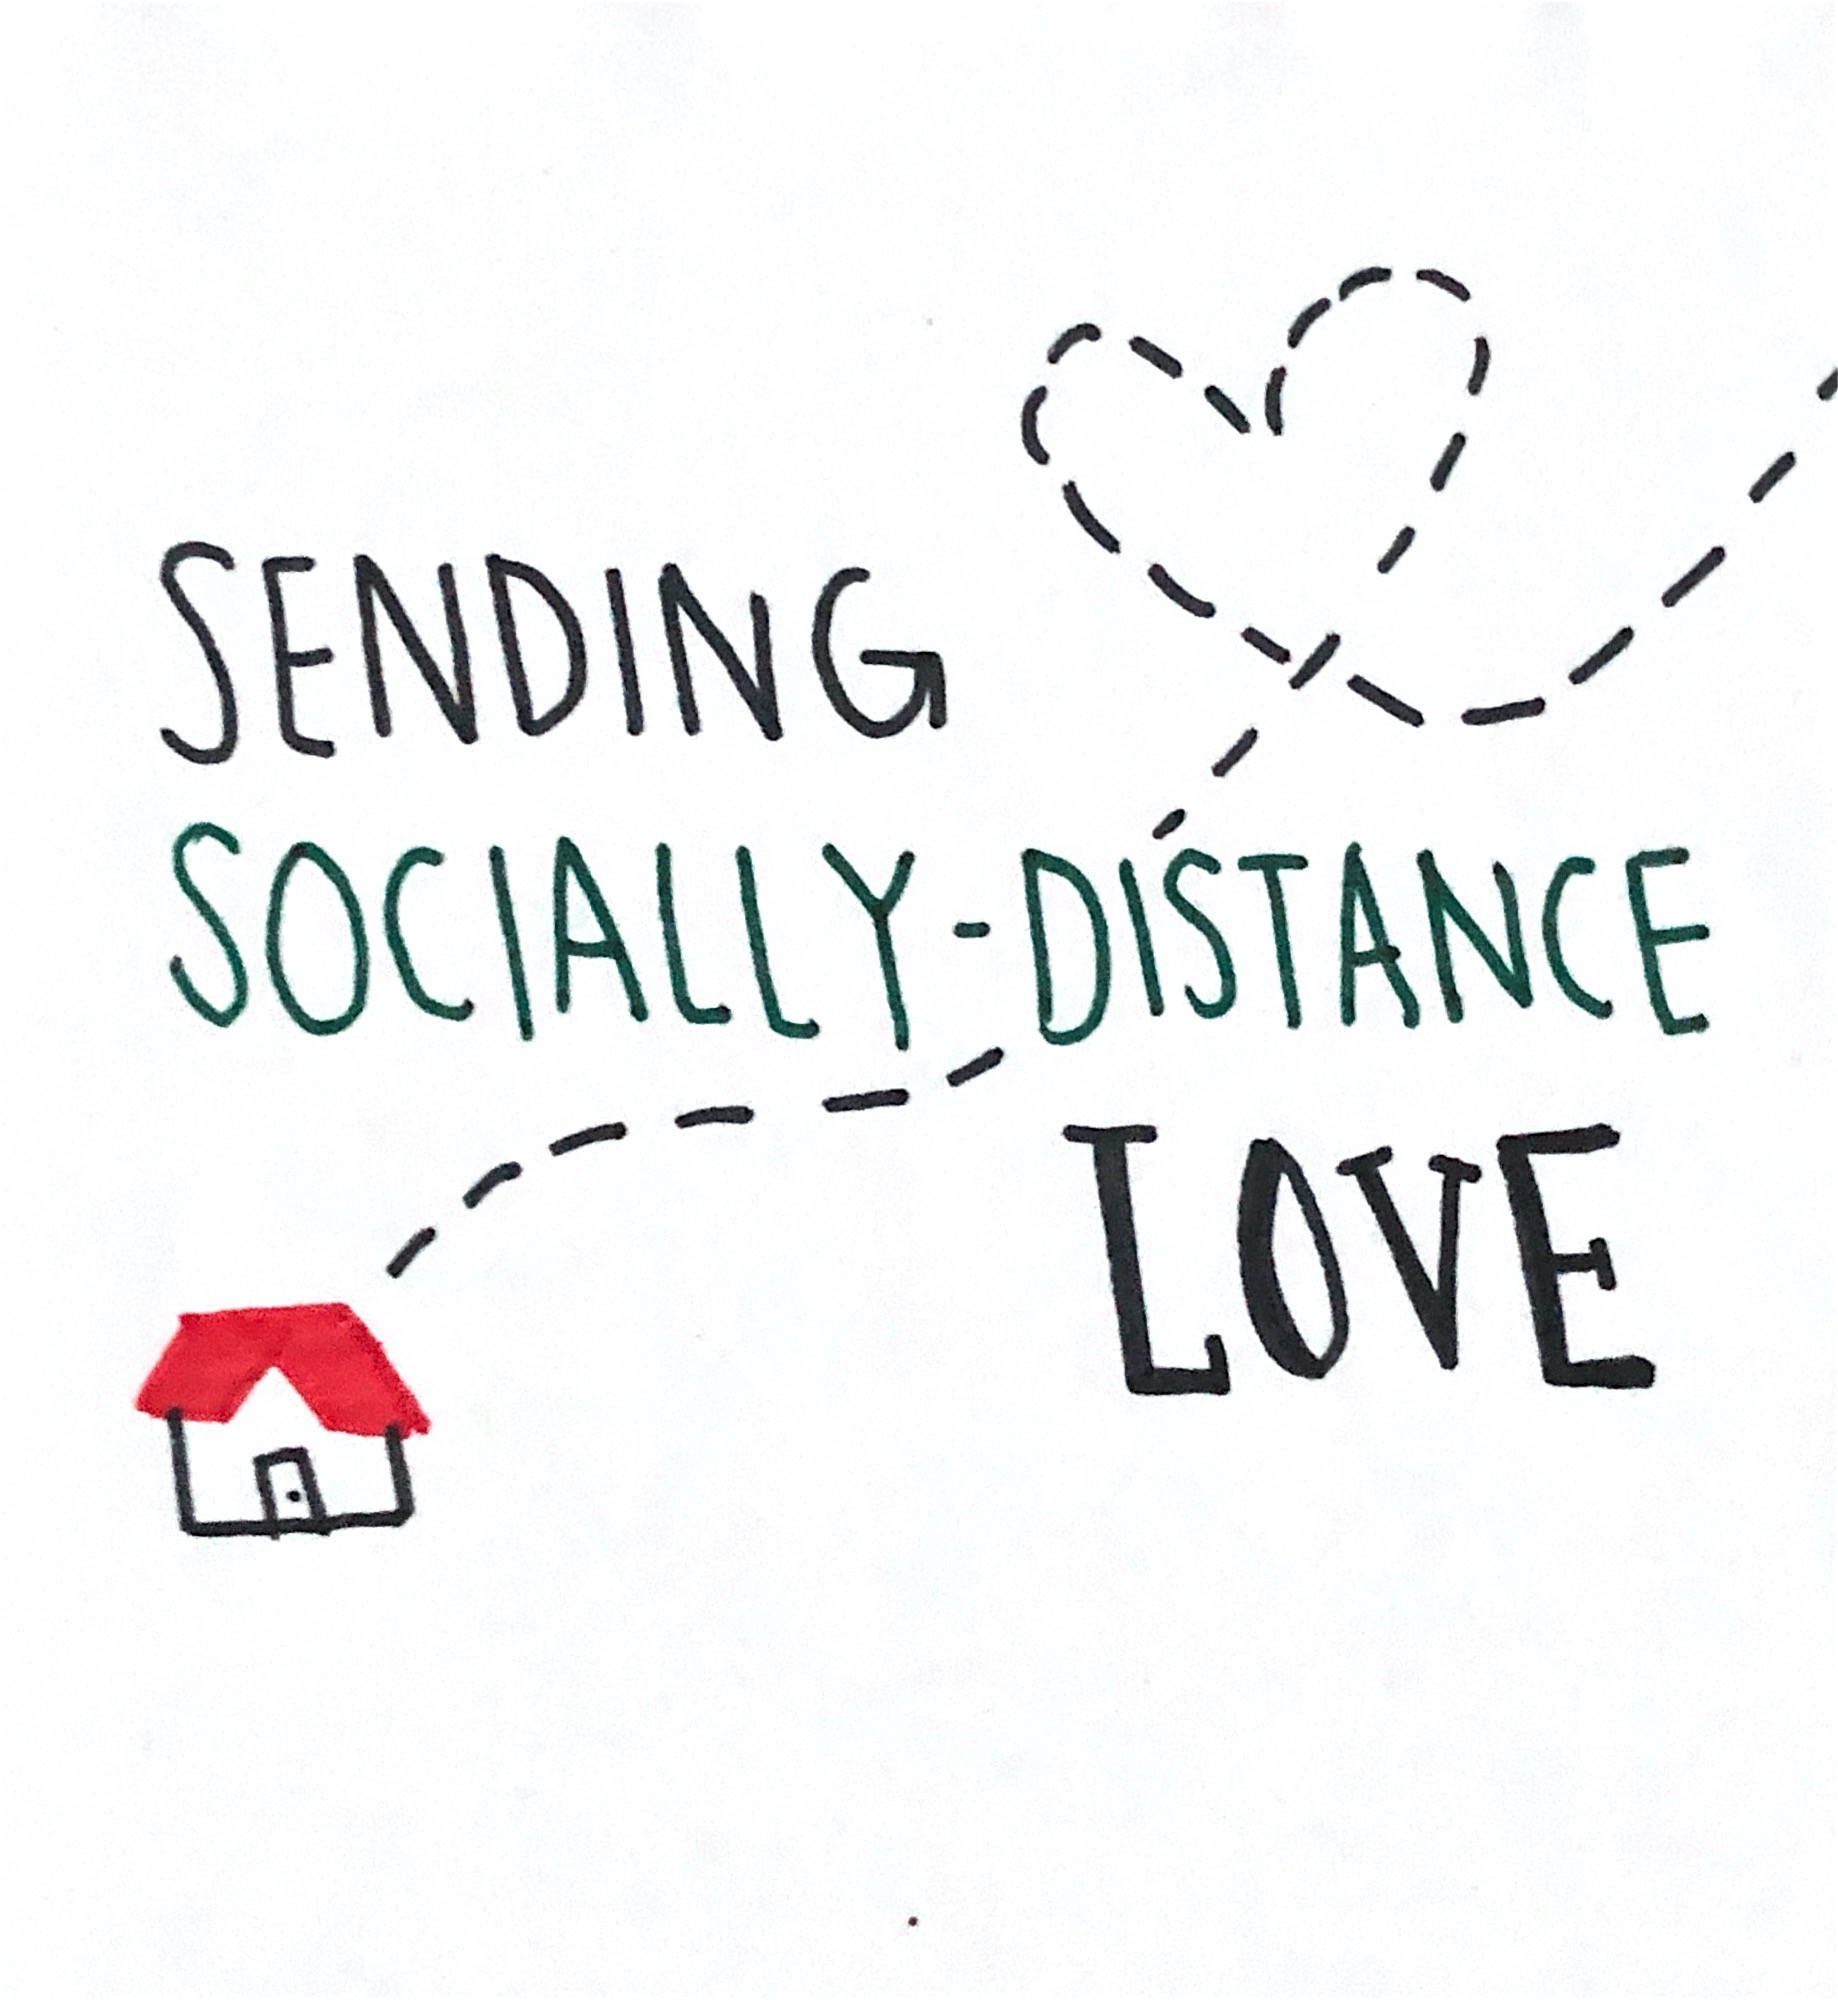 SENDING
SOCIALLY-DISTANCE
LOVE